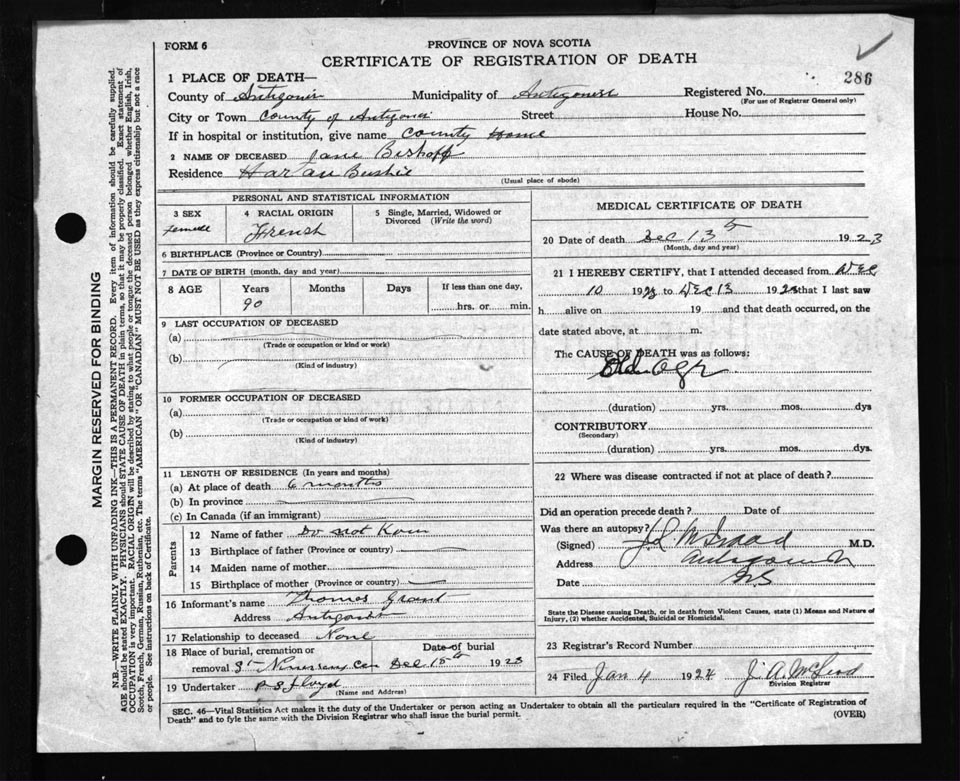 FORM 6
PROVINCE OF NOVA SCOTIA
CERTIFICATE OF REGISTRATION OF DEATH
286
1 PLACE OF DEATH—
County of Antigonis Municipality of Antigonish Registered No.
(For use of Registrar General only)
City or Town County of Antigonis Street House No.
If in hospital or institution, give name County Home
2 NAME OF DECEASED Jane Bishopp
Residence Harbau Bushie
(Usual place of abode)
PERSONAL AND STATISTICAL INFORMATION
3 SEX Female
4 RACIAL ORIGIN French
5 Single, Married, Widowed or Divorced (Write the word)
6 BIRTHPLACE (Province or Country)
7 DATE OF BIRTH (month, day and year)
8 AGE Years Months Days If less than one day,
90 hrs. or min.
9 LAST OCCUPATION OF DECEASED
(a)
(Trade or occupation or kind or work)
(b)
(Kind of industry)
10 FORMER OCCUPATION OF DECEASED
(a)
(Trade or occupation or kind or work)
(b)
(Kind of industry)
11 LENGTH OF RESIDENCE (In years and months)
(a) At place of death 6 months
(b) In province
(c) In Canada (if an immigrant)
Parents
12 Name of father Do not Kown
13 Birthplace of father (Province or country)
14 Maiden name of mother
15 Birthplace of mother (Province or country)
16 Informant's name Thomas Grant
Address Antigonish
17 Relationship to deceased None
18 Place of burial, cremation or Date of burial
removal St Dec 15th 1923
19 Undertaker P S Floyd
(Name and Address)
MEDICAL CERTIFICATE OF DEATH
20 Date of death Dec 13th 1923
(Month, day and year)
21 I HEREBY CERTIFY, that I attended deceased from Dec
10 1923 to Dec 13 1923 that I last saw
h alive on 19 and that death occurred, on the
date stated above, at m.
The CAUSE OF DEATH was as follows:
Old age
(duration) yrs. mos. dys
CONTRIBUTORY
(Secondary)
(duration) yrs. mos. dys.
22 Where was disease contracted if not at place of death?
Did an operation precede death? Date of
Was there an autopsy?
(Signed) M.D.
Address Antigonish
Date NS
State the Disease causing Death, or in death from Violent Causes, state (1) Means and Nature of
Injury, (2) whether Accidental, Suicidal or Homicidal.
23 Registrar's Record Number
24 Filed Jan 4 1924 J. A. McLeod
Division Registrar
SEC. 46—Vital Statistics Act makes it the duty of the Undertaker or person acting as Undertaker to obtain all the particulars required in the "Certificate of Registration of
Death" and to fyle the same with the Division Registrar who shall issue the burial permit.
(OVER)
MARGIN RESERVED FOR BINDING
N.B.—WRITE PLAINLY WITH UNFADING INK—THIS IS A PERMANENT RECORD. Every item of information should be carefully supplied.
AGE should be stated EXACTLY. PHYSICIANS should STATE CAUSE OF DEATH in plain terms, so that it may be properly classified. Exact statement of
OCCUPATION is very important. RACIAL ORIGIN will be described by stating to what people or tongue the deceased person belonged whether English, Irish,
Scotch, French, German, Russian, Ruthenian, etc. The terms "AMERICAN" or "CANADIAN" MUST NOT BE USED as they express citizenship but not a race
or people. See instructions on back of Certificate.